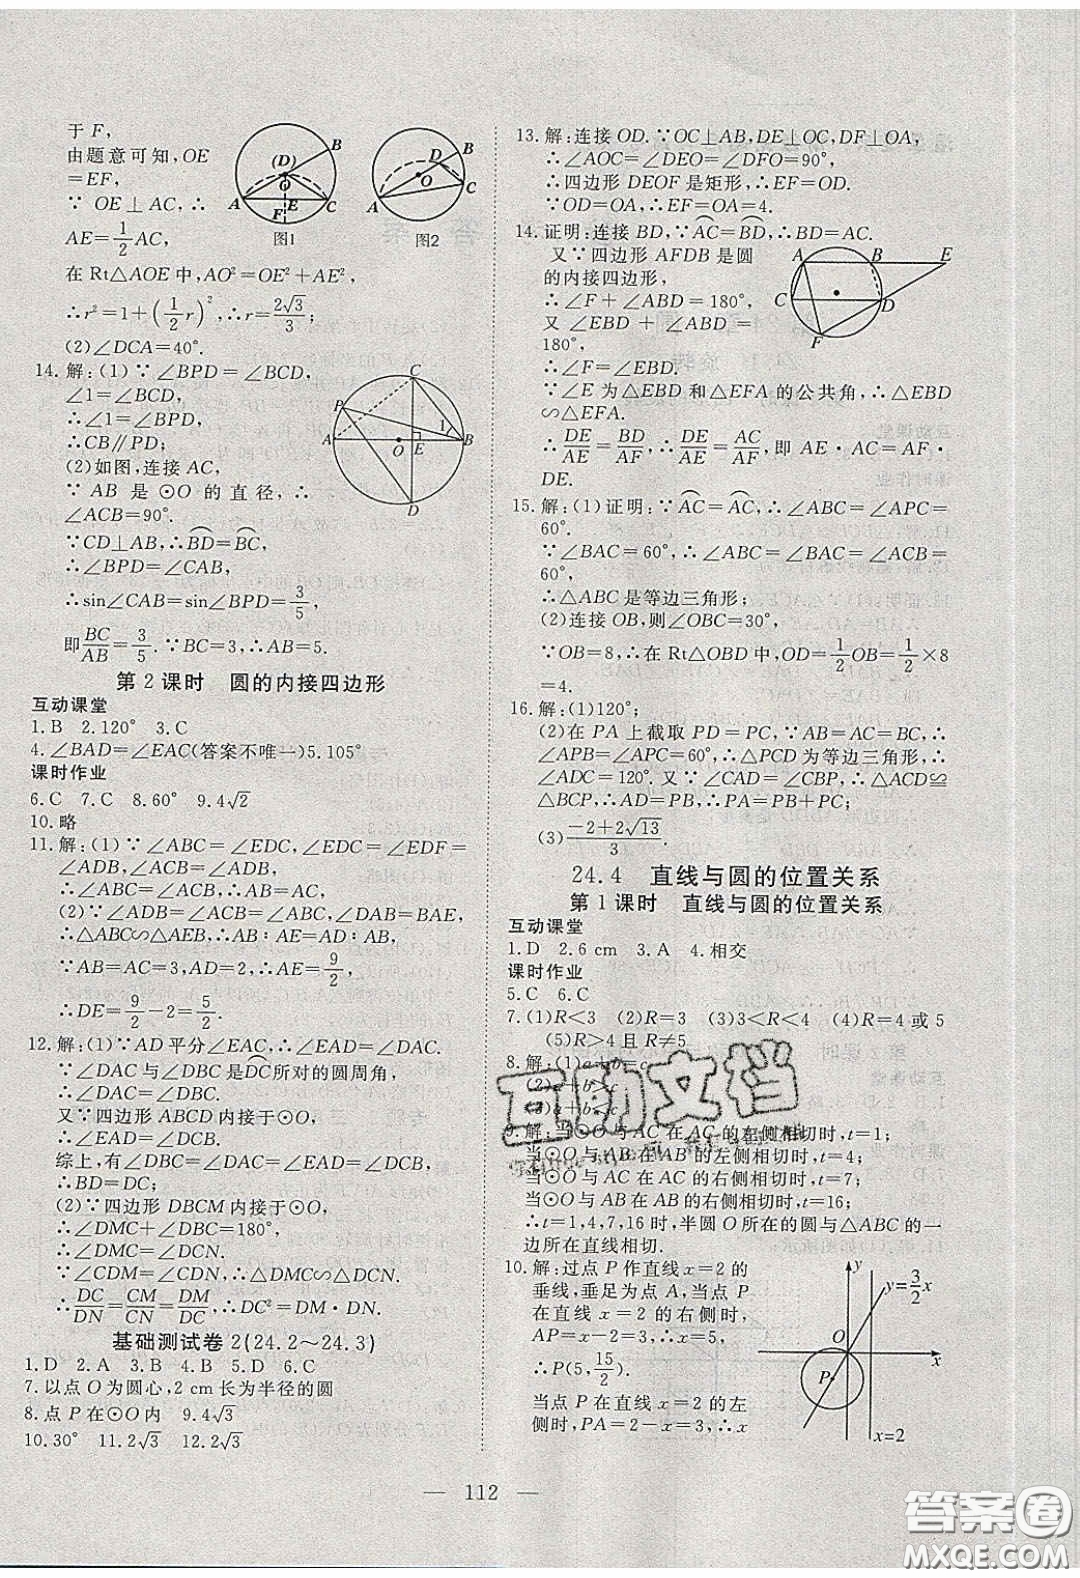 于 F,
由题意可知, OE
=EF,
∵ OE⊥AC, ∴
AE=1/2AC,
在 Rt△AOE 中, AO²=OE²+AE²,
∴r²=1+(1/2 r)², ∴r=2√3/3;
(2)∠DCA=40°.
(D) B O A E C F 图1
B D O C A 图2
14. 解:(1)∵∠BPD=∠BCD,
∠1=∠BCD,
∴∠1=∠BPD,
∴CB∥PD;
(2)如图,连接 AC,
∵ AB 是 ⊙O 的 直 径, ∴
∠ACB=90°.
∵CD⊥AB, ∴BD⌒=BC⌒,
∴∠BPD=∠CAB,
∴sin∠CAB=sin∠BPD=3/5,
即BC/AB=3/5. ∵BC=3, ∴AB=5.
C P 1 A O E B D
第 2 课时 圆的内接四边形
互动课堂
1. B 2. 120° 3. C
4. ∠BAD=∠EAC(答案不唯一) 5. 105°
课时作业
6. C 7. C 8. 60° 9. 4√2
10. 略
11. 解:(1)∵∠ABC=∠EDC, ∠EDC=∠EDF=
∠ADB, ∠ADB=∠ACB,
∴∠ABC=∠ACB, ∴AB=AC;
(2)∵∠ADB=∠ACB=∠ABC, ∠DAB=BAE,
∴△ABC∽△AEB, ∴AB∶AE=AD∶AB,
∵AB=AC=3, AD=2, ∴AE=9/2,
∴DE=9/2−2=5/2.
12. 解:(1)∵AD 平分∠EAC, ∴∠EAD=∠DAC.
∵∠DAC 与∠DBC 是DC⌒所对的圆周角,
∴∠DAC=∠DBC.
又∵四边形 ABCD 内接于⊙O,
∴∠EAD=∠DCB.
综上,有∠DBC=∠DAC=∠EAD=∠DCB,
∴BD=DC;
(2)∵四边形 DBCM 内接于⊙O,
∴∠DMC+∠DBC=180°,
∴∠DMC=∠DCN.
∵∠CDM=∠CDN, ∴△DMC∽△DCN,
∴DC/DN=CM/CN=DM/DC, ∴DC²=DM·DN.
基础测试卷 2(24.2～24.3)
1. D 2. A 3. B 4. B 5. D 6. C
7. 以点 O 为圆心, 2 cm 长为半径的圆
8. 点 P 在⊙O 内 9. 4√3
10. 30° 11. 2√3 12. 2√3
13. 解:连接 OD. ∵OC⊥AB, DE⊥OC, DF⊥OA,
∴∠AOC=∠DEO=∠DFO=90°,
∴四边形 DEOF 是矩形, ∴EF=OD.
∵OD=OA, ∴EF=OA=4.
14. 证明:连接 BD, ∵AC⌒=BD⌒, ∴AC=BD.
又∵四边形 AFDB 是圆
的内接四边形,
∴∠F+∠ABD=180°,
又 ∠EBD + ∠ABD =
180°,
∴∠F=∠EBD.
∵∠E 为△EBD 和△EFA 的公共角, ∴△EBD
∽△EFA.
∴DE/AE=BD/AF, ∴DE/AE=AC/AF, 即 AE·AC=AF·
DE.
A B E C D F
15. 解:(1)证明:∵AC⌒=AC⌒, ∴∠ABC=∠APC=
60°.
∵∠BAC=60°, ∴∠ABC=∠BAC=60°,
∴△ABC 是等边三角形;
(2)连接 OB,则∠OBC=30°,
∵OB=8, ∴在 Rt△OBD 中, OD=1/2OB=1/2×8
=4.
16. 解:(1)120°;
(2)在 PA 上截取 PD = PC, ∵AB = AC = BC, ∴
∠APB=∠APC=60°, ∴△PDC 为等边三角形, ∴
∠ADC=120°. 又∵∠CAD=∠CBP, ∴△ACD≌
△BCP, ∴AD=PB, ∴PA=PB+PC;
(3)(−2+2√13)/3.
24.4 直线与圆的位置关系
第 1 课时 直线与圆的位置关系
互动课堂
1. D 2. 6 cm 3. A 4. 相交
课时作业
5. C 6. C
7. (1)R<3 (2)R=3 (3)3<R<4 (4)R=4 或 5
(5)R>4 且 R≠5.
8. 解:(1)a+b=c
(2)a+b>c
(3)a+b<c
9. 解:当⊙O 与 AC 在 AC 的左侧相切时, t=1;
当⊙O 与 AB 在 AB 的左侧相切时, t=4;
当⊙O 与 AC 在 AC 的右侧相切时, t=7;
当⊙O 与 AB 在 AB 的右侧相切时, t=16;
∴t=1,4,7,16 时,半圆 O 所在的圆与△ABC 的一
边所在直线相切.
10. 解:过点 P 作直线 x=2 的
垂线,垂足为点 A,当点 P
在直线 x=2 的右侧时,
AP=x−2=3, ∴x=5,
∴P(5, 15/2).
当点 P 在直线 x=2 的左
侧时, PA=2−x=3, x=
y y=3/2 x O x P x=2
互助文档
— 112 —
答案圈
MXQE.COM